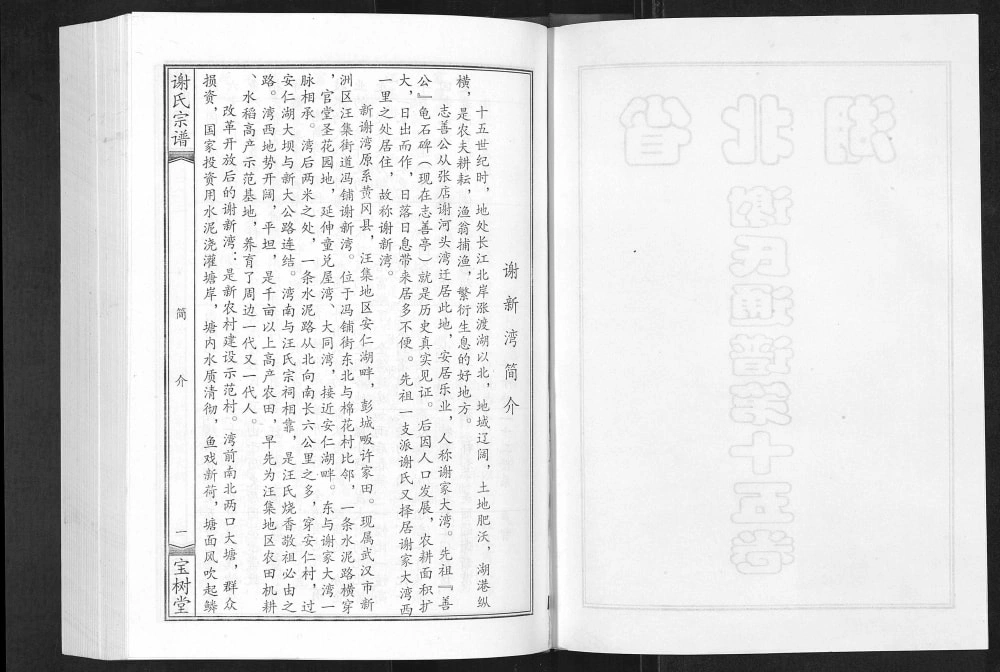 谢新湾简介
十五世纪时，地处长江北岸涨渡湖以北，地域辽阔，土地肥沃，湖港纵
横，是农夫耕耘，渔翁捕渔，繁衍生息的好地方。
志善公从张店谢河头湾迁居此地，安居乐业，人称谢家大湾。先祖『善
公』龟石碑（现在志善亭）就是历史真实见证。后因人口发展，农耕面积扩
大，日出而作，日落日息带来居多不便。先祖一支派谢氏又择居谢家大湾西
一里之处居住，故称谢新湾。
新谢湾原系黄冈县，汪集地区安仁湖畔，彭城畈许家田。现属武汉市新
洲区汪集街道冯铺谢新湾。位于冯铺街东北与棉花村比邻，一条水泥路横穿
，官堂圣花园地，延伸童兑屋湾、大同湾，接近安仁湖畔。东与谢家大湾一
脉相承。湾后两米之处，一条水泥路从北向南长六公里之多，穿安仁村，过
安仁湖大坝与新大公路连结。湾南与汪氏宗祠相靠，是汪氏烧香敬祖必由之
路。湾西地势开阔，平坦，是千亩以上高产农田，早先为汪集地区农田机耕
、水稻高产示范基地，养育了周边一代又一代人。
改革开放后的谢新湾：是新农村建设示范村。湾前南北两口大塘，群众
损资，国家投资用水泥浇灌塘岸，塘内水质清彻，鱼戏新荷，塘面风吹起鳞
谢氏宗谱
简介
一
宝树堂
湖北省
谢氏通谱第十五卷